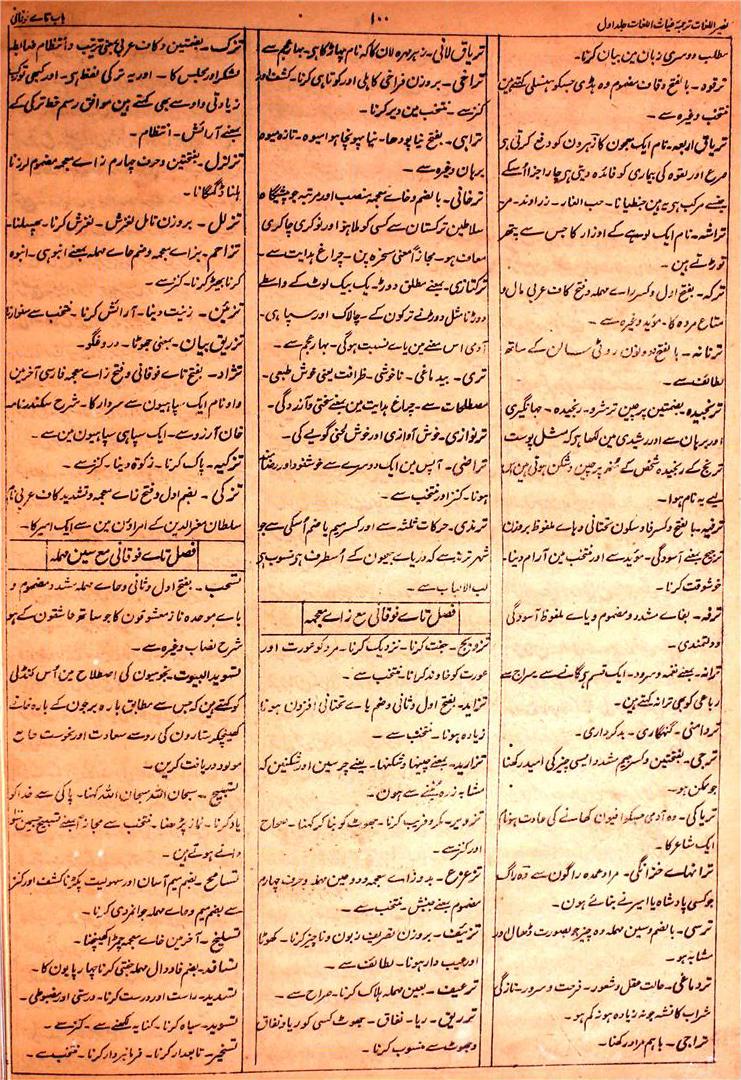 نصیر اللغات ترجمۂ غیاث اللغات جلد اول
۱۰۰
باب تاے فوقانی
مطلب دوسری زبان مین بیان کرنا۔
ترقوہ۔ بالفتح وقاف مضموم وہ ہڈی جسکو ہنسلی کہتے ہین
منتخب وغیرہ سے۔
تریاق اربعہ۔ نام ایک معجون کا زہرون کو دفع کرتی ہی
صرع اور لقوہ کی بیماری کو فائدہ دیتی ہی چار اجزا اسکے
جنسے مرکب ہی یہ ہین جنطیانا۔ حب الغار۔ زراوند۔ مر
تراشہ۔ نام ایک لوہے کے اوزار کا جس سے پتھر
توڑتے ہین۔
ترکہ۔ بفتح اول وکسر راے مہملہ وفتح کاف عربی مال و
متاع مردہ کا۔ موید وغیرہ سے۔
ترنانہ۔ بالفتح دو نون روٹی سالن کے ساتھ
لطائف سے۔
ترنجیدہ۔ بفتحتین پرچین ترشرو۔ رنجیدہ۔ جہانگیری
اور برہان سے اور رشیدی مین لکھا ہو کہ مثل پوست
ترنج کے رنجیدہ شخص کے منھ پر چین وشکن ہوتی ہین اس
لیے یہ نام ہوا۔
ترفیہ۔ بالفتح وکسر فا وسکون تحتانی وہاے ملفوظ بروزن
ترجیح بمعنے آسودگی۔ موید سے اور منتخب مین آرام دینا۔
خوشوقت کرنا۔
ترفہ۔ بفاے مشدد ومضموم وہاے ملفوظ آسودگی
دولتمندی۔
ترانہ۔ بمعنے نغمہ وسرود۔ ایک قسم ہی گانے سے۔ سراج سے
رباعی کو بھی ترانہ کہتے ہین۔
تردامنی۔ گنہگاری۔ بدکرداری۔
ترجی۔ بفتحتین وکسر جیم مشدد ایسی چیز کی امید رکھنا
جو ممکن ہو۔
تریاکی۔ وہ آدمی جسکو افیون کھانے کی عادت ہو نام
ایک شاعر کا۔
ترانہاے خزانگی۔ مراد عمدہ راگون سے وہ راگ
جو کسی پادشاہ یا امیر نے بنائے ہون۔
ترسی۔ بالضم وسین مہملہ وہ چیز جو بصورت ڈھال اور
مشابہ ہو۔
تردماغی۔ حالت عقل وشعور۔ فرحت وسرور۔ تازگی
شراب کا نشہ جو نہ زیادہ ہو نہ کم ہو۔
تراجی۔ باہم مراد رکھنا۔
تریاق لانی۔ زہر مہرہ لان کا کہ نام پہاڑ کا ہی۔ بہار عجم سے
تراخی۔ بروزن فراخی کاہلی اور کوتاہی کرنا۔ کشف اور
کنز سے۔ منتخب مین دیر کرنا۔
تراہی۔ بفتح نیا پودھا۔ نیا پہونچا ہوا میوہ۔ تازہ میوہ
برہان وغیرہ سے۔
ترخانی۔ بالضم وخاے معجمہ منصب اور مرتبہ جو پیشگاہ
سلاطین ترکستان سے کسی کو ملا ہو اور نوکری چاکری
معاف ہو۔ مجازاً بمعنی مسخرہ پن۔ چراغ ہدایت سے۔
ترکتازی۔ بمعنے مطلق دوڑ۔ یک بیک لوٹ کے واسطے
دوڑنا مثل دوڑنے ترکون کے۔ چالاک اور سپاہی۔
آدمی اس معنے مین یاے نسبت ہوگی۔ بہار عجم سے۔
تری۔ بیدماغی۔ ناخوشی۔ ظرافت یعنی خوش طبعی۔
مصطلحات سے۔ چراغ ہدایت مین بمعنے سختی وآزردگی۔
ترنوازی۔ خوش آوازی اور خوش لحنی گویے کی۔
تراضی۔ آپس مین ایک دوسرے سے خوشنود اور رضامند
ہونا۔ کنز اور منتخب سے۔
ترمذی۔ حرکات ثلثہ سے اور کسر میم یا ضم اُسکی سے جو
شہر ترمذ سے کہ دریاے جیحون کے اُسطرف ہو منسوب ہو
لب الالباب سے۔
فصل تاے فوقانی مع زاے معجمہ
تزویج۔ جفت کرنا۔ نزدیک کرنا۔ مرد کو عورت اور
عورت کو خاوند کرانا۔ منتخب سے۔
تزاید۔ بفتح اول وثانی وضم یاے تحتانی افزون ہونا
زیادہ ہونا۔ منتخب سے۔
تزارید۔ بمعنے چینہا وشکنہا۔ یعنے چرسین اور شکنین کہ
مشابہ زرہ بُننے سے ہون۔
تزویر۔ مکر وفریب کرنا۔ جھوٹ کو بنا کر کہنا۔ صحاح
اور کنز سے۔
تزعزع۔ بدو زاے معجمہ ودو عین مہملہ وحرف چہارم
مضموم بمعنے جنبش۔ منتخب سے۔
تزئیف۔ بروزن تعریف زبون وناچیز کرنا۔ کھوٹا
اور عیب دار ہونا۔ لطائف سے۔
ترعیف۔ بعین مہملہ ہلاک کرنا۔ صراح سے۔
تزریق۔ ریا۔ نفاق۔ جھوٹ کسی کو ریا ونفاق
وجھوٹ سے منسوب کرنا۔
تزک۔ بضمتین وکاف عربی بمعنی ترتیب وانتظام ضابطہ
لشکر اور مجلس کا۔ اور یہ ترکی لفظ ہی۔ اور کبھی توزک
زیادتی واو سے بھی لکھتے ہین موافق رسم خط ترکی کے
بمعنے آرائش۔ انتظام۔
تزلزل۔ بفتحتین وحرف چہارم زاے معجمہ مضموم لرزنا
ہلنا ڈگمگانا۔
تزلل۔ بروزن تامل لغزش۔ لغزش کرنا۔ پھسلنا۔
تزاحم۔ بزاے معجمہ وضم حاے مہملہ بمعنے انبوہی۔ انبوہ
کرنا بھیڑ کرنا۔ کنز سے۔
تزئین۔ زینت دینا۔ آرائش کرنا۔ منتخب سے
تزریق بیان۔ بمعنی جھوٹا۔ دروغگو۔
تژاد۔ بفتح تاے فوقانی وفتح زاے معجمہ فارسی آخر مین
واو نام ایک سپاہیون سے سردار کا۔ شرح سکندر نامہ
خان آرزو سے۔ ایک سپاہی سپاہیون مین سے۔
تزکیہ۔ پاک کرنا۔ زکوٰۃ دینا۔ کنز سے۔
تزکی۔ بضم اول وفتح زاے معجمہ وتشدید کاف عربی نام
سلطان معز الدین کے امراؤن مین سے ایک امیر کا۔
فصل تاے فوقانی مع سین مہملہ
تسحب۔ بفتح اول وثانی وحاے مہملہ مشدد مضموم و
باے موحدہ ناز معشوقون کا جو ساتھ عاشقون کے ہو
شرح نصاب وغیرہ سے۔
تسوید البیوت۔ نجومیون کی اصطلاح مین اُس کنڈلی
کو کہتے ہین کہ جس سے مطابق بارہ برجون کے بارہ خانے
کھینچکر ستارون کی روسے سعادت اور نحوست طالع
مولود دریافت کرین۔
تسبیح۔ سبحان اللہ سبحان اللہ کہنا۔ پاکی سے خدا کو
یاد کرنا۔ نماز پڑھنا۔ منتخب سے مجازاً بمعنے تسبیح جسمین سو
دانے ہوتے ہین۔
تسامح۔ بضم میم آسان اور سہولیت پکڑنا کشف اور کنز
سے بضم میم وحاے مہملہ جوانمردی کرنا۔
تسلیخ۔ آخر مین خاے معجمہ چمڑا کھینچنا۔
تسافد۔ بضم فا ودال مہملہ جفتی کرنا چارپایون کا۔
تسدید۔ راست اور درست کرنا۔ درستی اور مضبوطی۔
تسوید۔ سیاہ کرنا۔ کنایہ لکھنے سے۔ کنز سے۔
تسخیر۔ تابعدار کرنا۔ فرمانبردار کرنا۔ منتخب سے۔